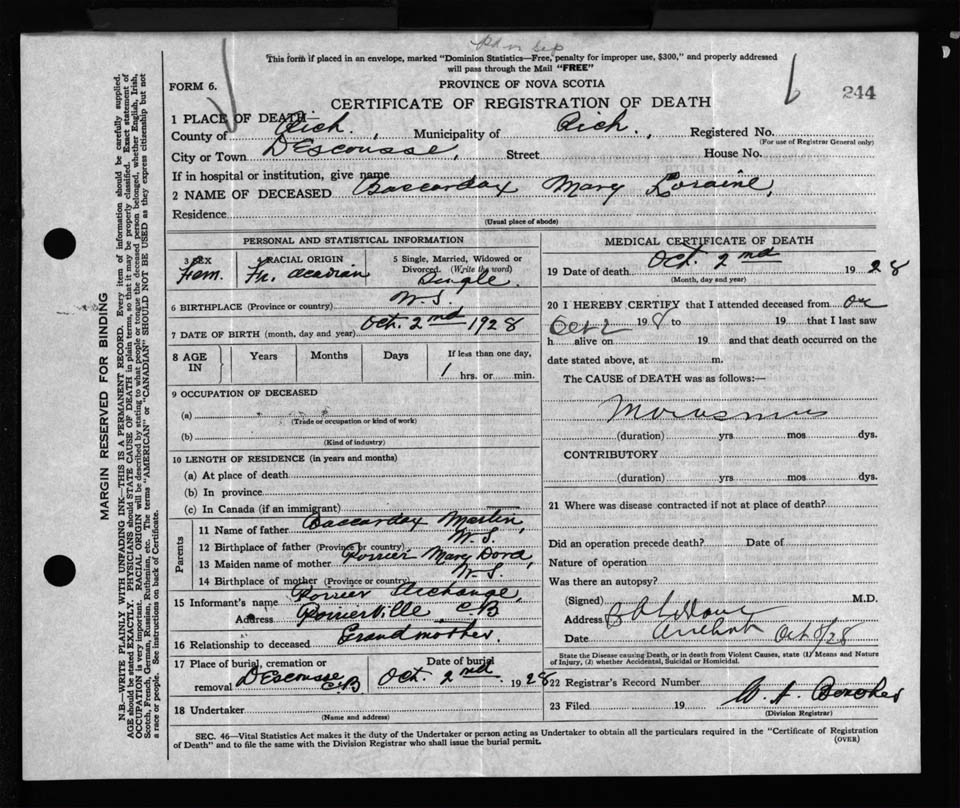 This form if placed in an envelope, marked "Dominion Statistics—Free, penalty for improper use, $300," and properly addressed
will pass through the Mail "FREE"
FORM 6.
PROVINCE OF NOVA SCOTIA
244
CERTIFICATE OF REGISTRATION OF DEATH
1 PLACE OF DEATH—
County of Rich. , Municipality of Rich. , Registered No.
(For use of Registrar General only)
City or Town D'Escousse, Street House No.
If in hospital or institution, give name
2 NAME OF DECEASED Baccardax Mary Loraine,
Residence
(Usual place of abode)
PERSONAL AND STATISTICAL INFORMATION
3 SEX 4 RACIAL ORIGIN 5 Single, Married, Widowed or Divorced. (Write the word)
Fem. Fr. Acadian Single.
6 BIRTHPLACE (Province or country) N.S.
7 DATE OF BIRTH (month, day and year) Oct. 2nd 1928
8 AGE IN Years Months Days If less than one day,
1 hrs. or min.
9 OCCUPATION OF DECEASED
(a)
(Trade or occupation or kind of work)
(b)
(Kind of industry)
10 LENGTH OF RESIDENCE (in years and months)
(a) At place of death
(b) In province
(c) In Canada (if an immigrant)
Parents
11 Name of father Baccardax Martin,
12 Birthplace of father (Province or country) N.S.
13 Maiden name of mother Poirier Mary Dora,
14 Birthplace of mother (Province or country) N.S.
15 Informant's name Poirier Archange,
Address Poirierville C.B
16 Relationship to deceased Grandmother.
17 Place of burial, cremation or removal D'Escousse C.B
Date of burial Oct. 2nd. 1928
18 Undertaker
(Name and address)
MEDICAL CERTIFICATE OF DEATH
19 Date of death Oct. 2nd 1928
(Month, day and year)
20 I HEREBY CERTIFY that I attended deceased from on
Oct 2 198 to 19 that I last saw
h alive on 19 and that death occurred on the
date stated above, at m.
The CAUSE of DEATH was as follows:—
Marasmus
(duration) yrs mos dys.
CONTRIBUTORY
(duration) yrs mos dys.
21 Where was disease contracted if not at place of death?
Did an operation precede death? Date of
Nature of operation
Was there an autopsy?
(Signed) M.D.
Address Arichat
Date Oct 8/28
State the Disease causing Death, or in death from Violent Causes, state (1) Means and Nature
of Injury, (2) whether Accidental, Suicidal or Homicidal.
22 Registrar's Record Number
23 Filed 19
(Division Registrar)
SEC. 46—Vital Statistics Act makes it the duty of the Undertaker or person acting as Undertaker to obtain all the particulars required in the "Certificate of Registration
of Death" and to file the same with the Division Registrar who shall issue the burial permit.
(OVER)
MARGIN RESERVED FOR BINDING
N.B.—WRITE PLAINLY WITH UNFADING INK—THIS IS A PERMANENT RECORD. Every item of information should be carefully supplied.
AGE should be stated EXACTLY. PHYSICIANS should STATE CAUSE OF DEATH in plain terms, so that it may be properly classified. Exact statement of
OCCUPATION is very important. RACIAL ORIGIN will be described by stating to what people or tongue the deceased person belonged, whether English, Irish,
Scotch, French, German, Russian, Ruthenian, etc. The terms "AMERICAN" or "CANADIAN" SHOULD NOT BE USED as they express citizenship but not
a race or people. See instructions on back of Certificate.